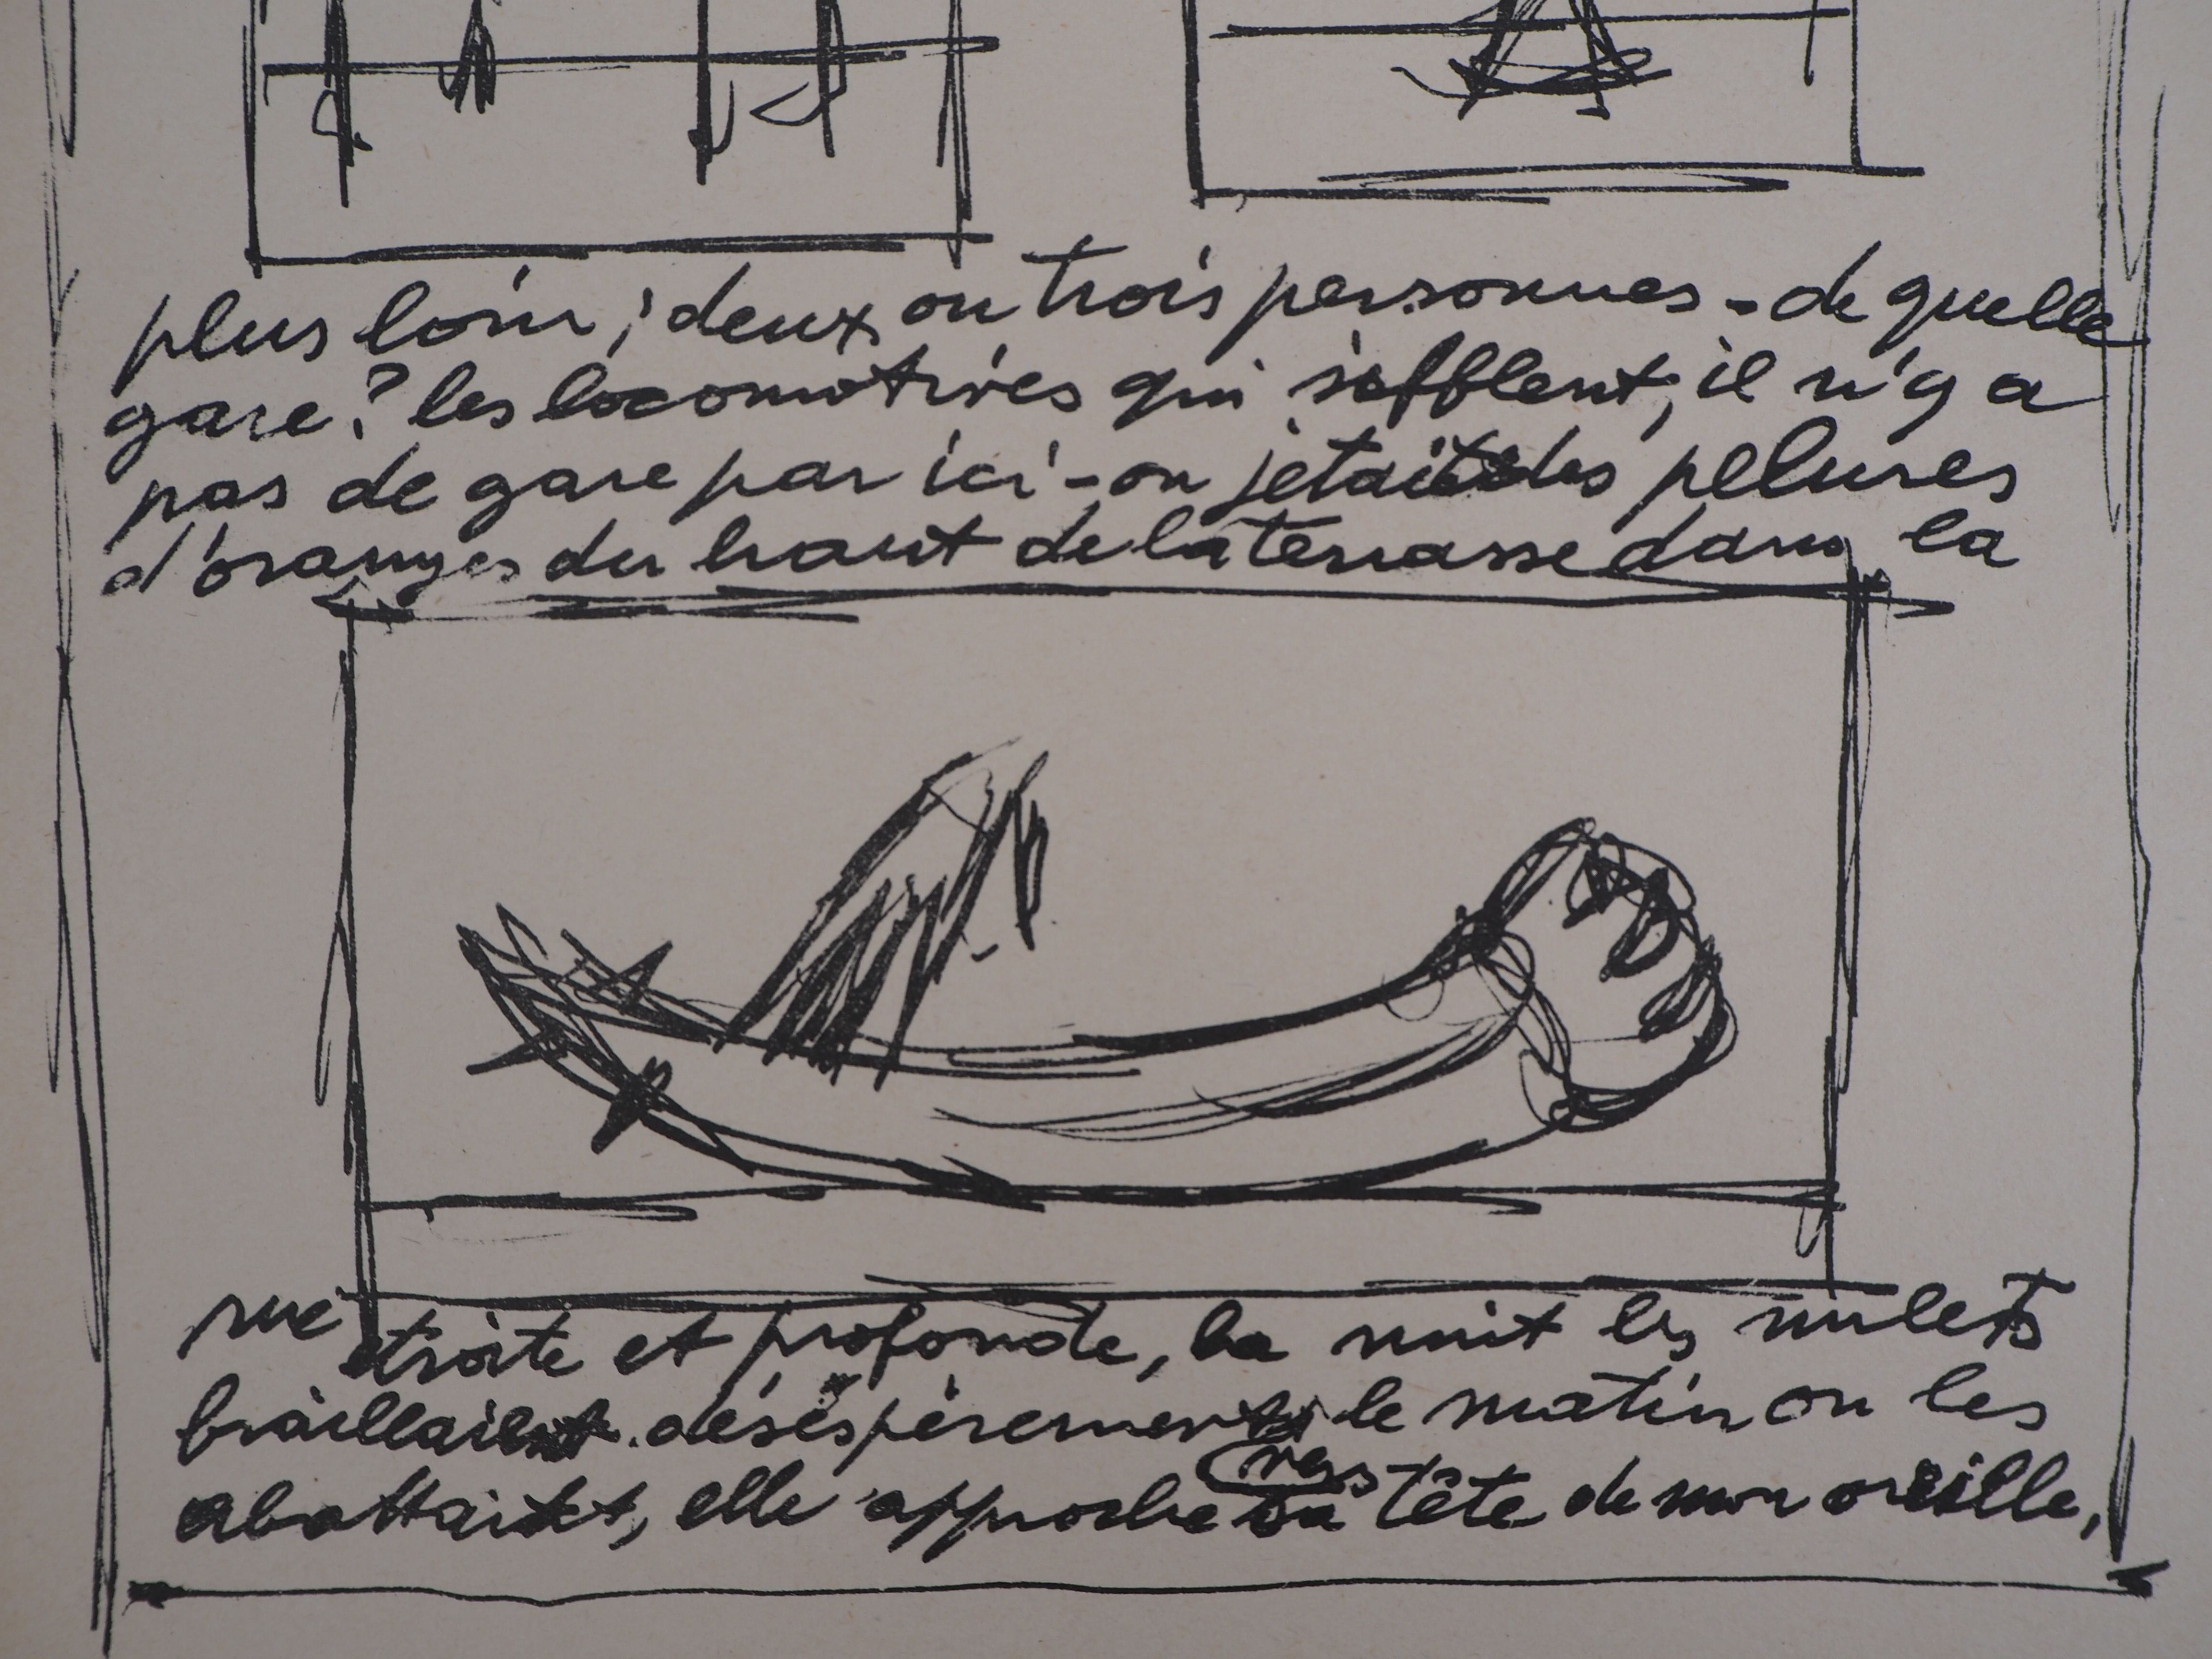 plus loin; deux ou trois personnes - de quelle
gare? les locomotives qui sifflent, il n'y a
pas de gare par ici - on jetait des pelures
d'oranges du haut de la terrasse dans la
rue étroite et profonde, la nuit les mulets
braillaient désespérément, le matin on les
abattait, elle approche sa tête de mon oreille,